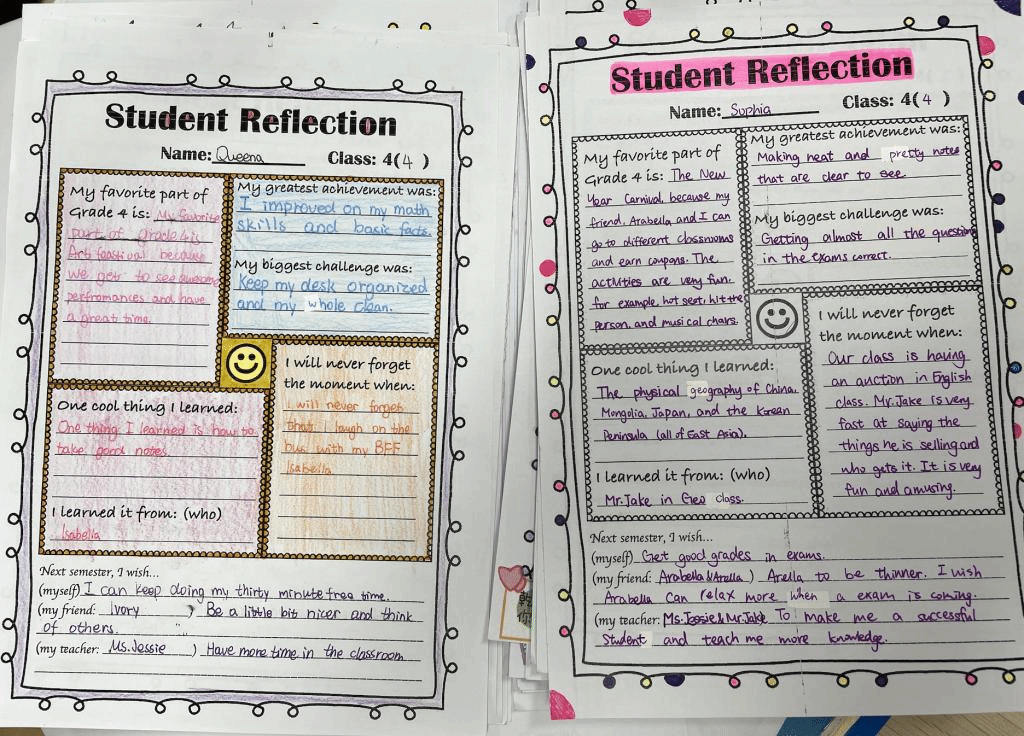 Student Reflection
Name: Queena Class: 4(4 )
My favorite part of
Grade 4 is: My favorite
part of grade 4 is
Art feastival because
we gets to see awesome
perfromances and have
a great time.
My greatest achievement was:
I improved on my math
skills and basic facts.
My biggest challenge was:
Keep my desk organized
and my whole clean.
One cool thing I learned:
One thing I learned is how to
take good notes.
I learned it from: (who)
Isabella
I will never forget
the moment when:
I will never forget
that I laugh on the
bus with my BFF
Isabella
Next semester, I wish...
(myself) I can keep doing my thirty minute free time.
(my friend: Ivory ) Be a little bit nicer and think
of others.
(my teacher: Ms.Jessie ) Have more time in the classroom
Student Reflection
Name: Sophia Class: 4( 4 )
My favorite part of
Grade 4 is: The New
Year Carnival, because my
friend, Arabella and I can
go to different classrooms
and earn coupons. The
activities are very fun.
for example, hot seat, hit the
person, and musical chairs.
My greatest achievement was:
Making neat and pretty notes
that are clear to see.
My biggest challenge was:
Getting almost all the questions
in the exams correct.
One cool thing I learned:
The physical geography of China.
Mongolia, Japan, and the Korean
Peninsula (all of East Asia).
I learned it from: (who)
Mr.Jake in Geo class.
I will never forget
the moment when:
Our class is having
an auction in English
class. Mr.Jake is very
fast at saying the
things he is selling and
who gets it. It is very
fun and amusing.
Next semester, I wish...
(myself) Get good grades in exams.
(my friend: Arabella & Arella ) Arella to be thinner. I wish
Arabella can relax more when a exam is coming.
(my teacher: Ms.Jessie & Mr.Jake To make me a successful
student and teach me more knowledge.